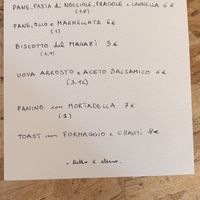 PANE, PASTA di NOCCIOLE, FRAGOLE e CANNELLA 6 €
(1,8)
PANE, OLIO e MARMELLATA 6 €
(1)
BISCOTTO del MAGAZI 3 €
(1,7)
UOVA ARROSTO e ACETO BALSAMICO 6 €
(3,12)
PANINO con MORTADELLA 7 €
(1)
TOAST con FORMAGGIO e CRAUTI 8 €
- tutto è eterno -